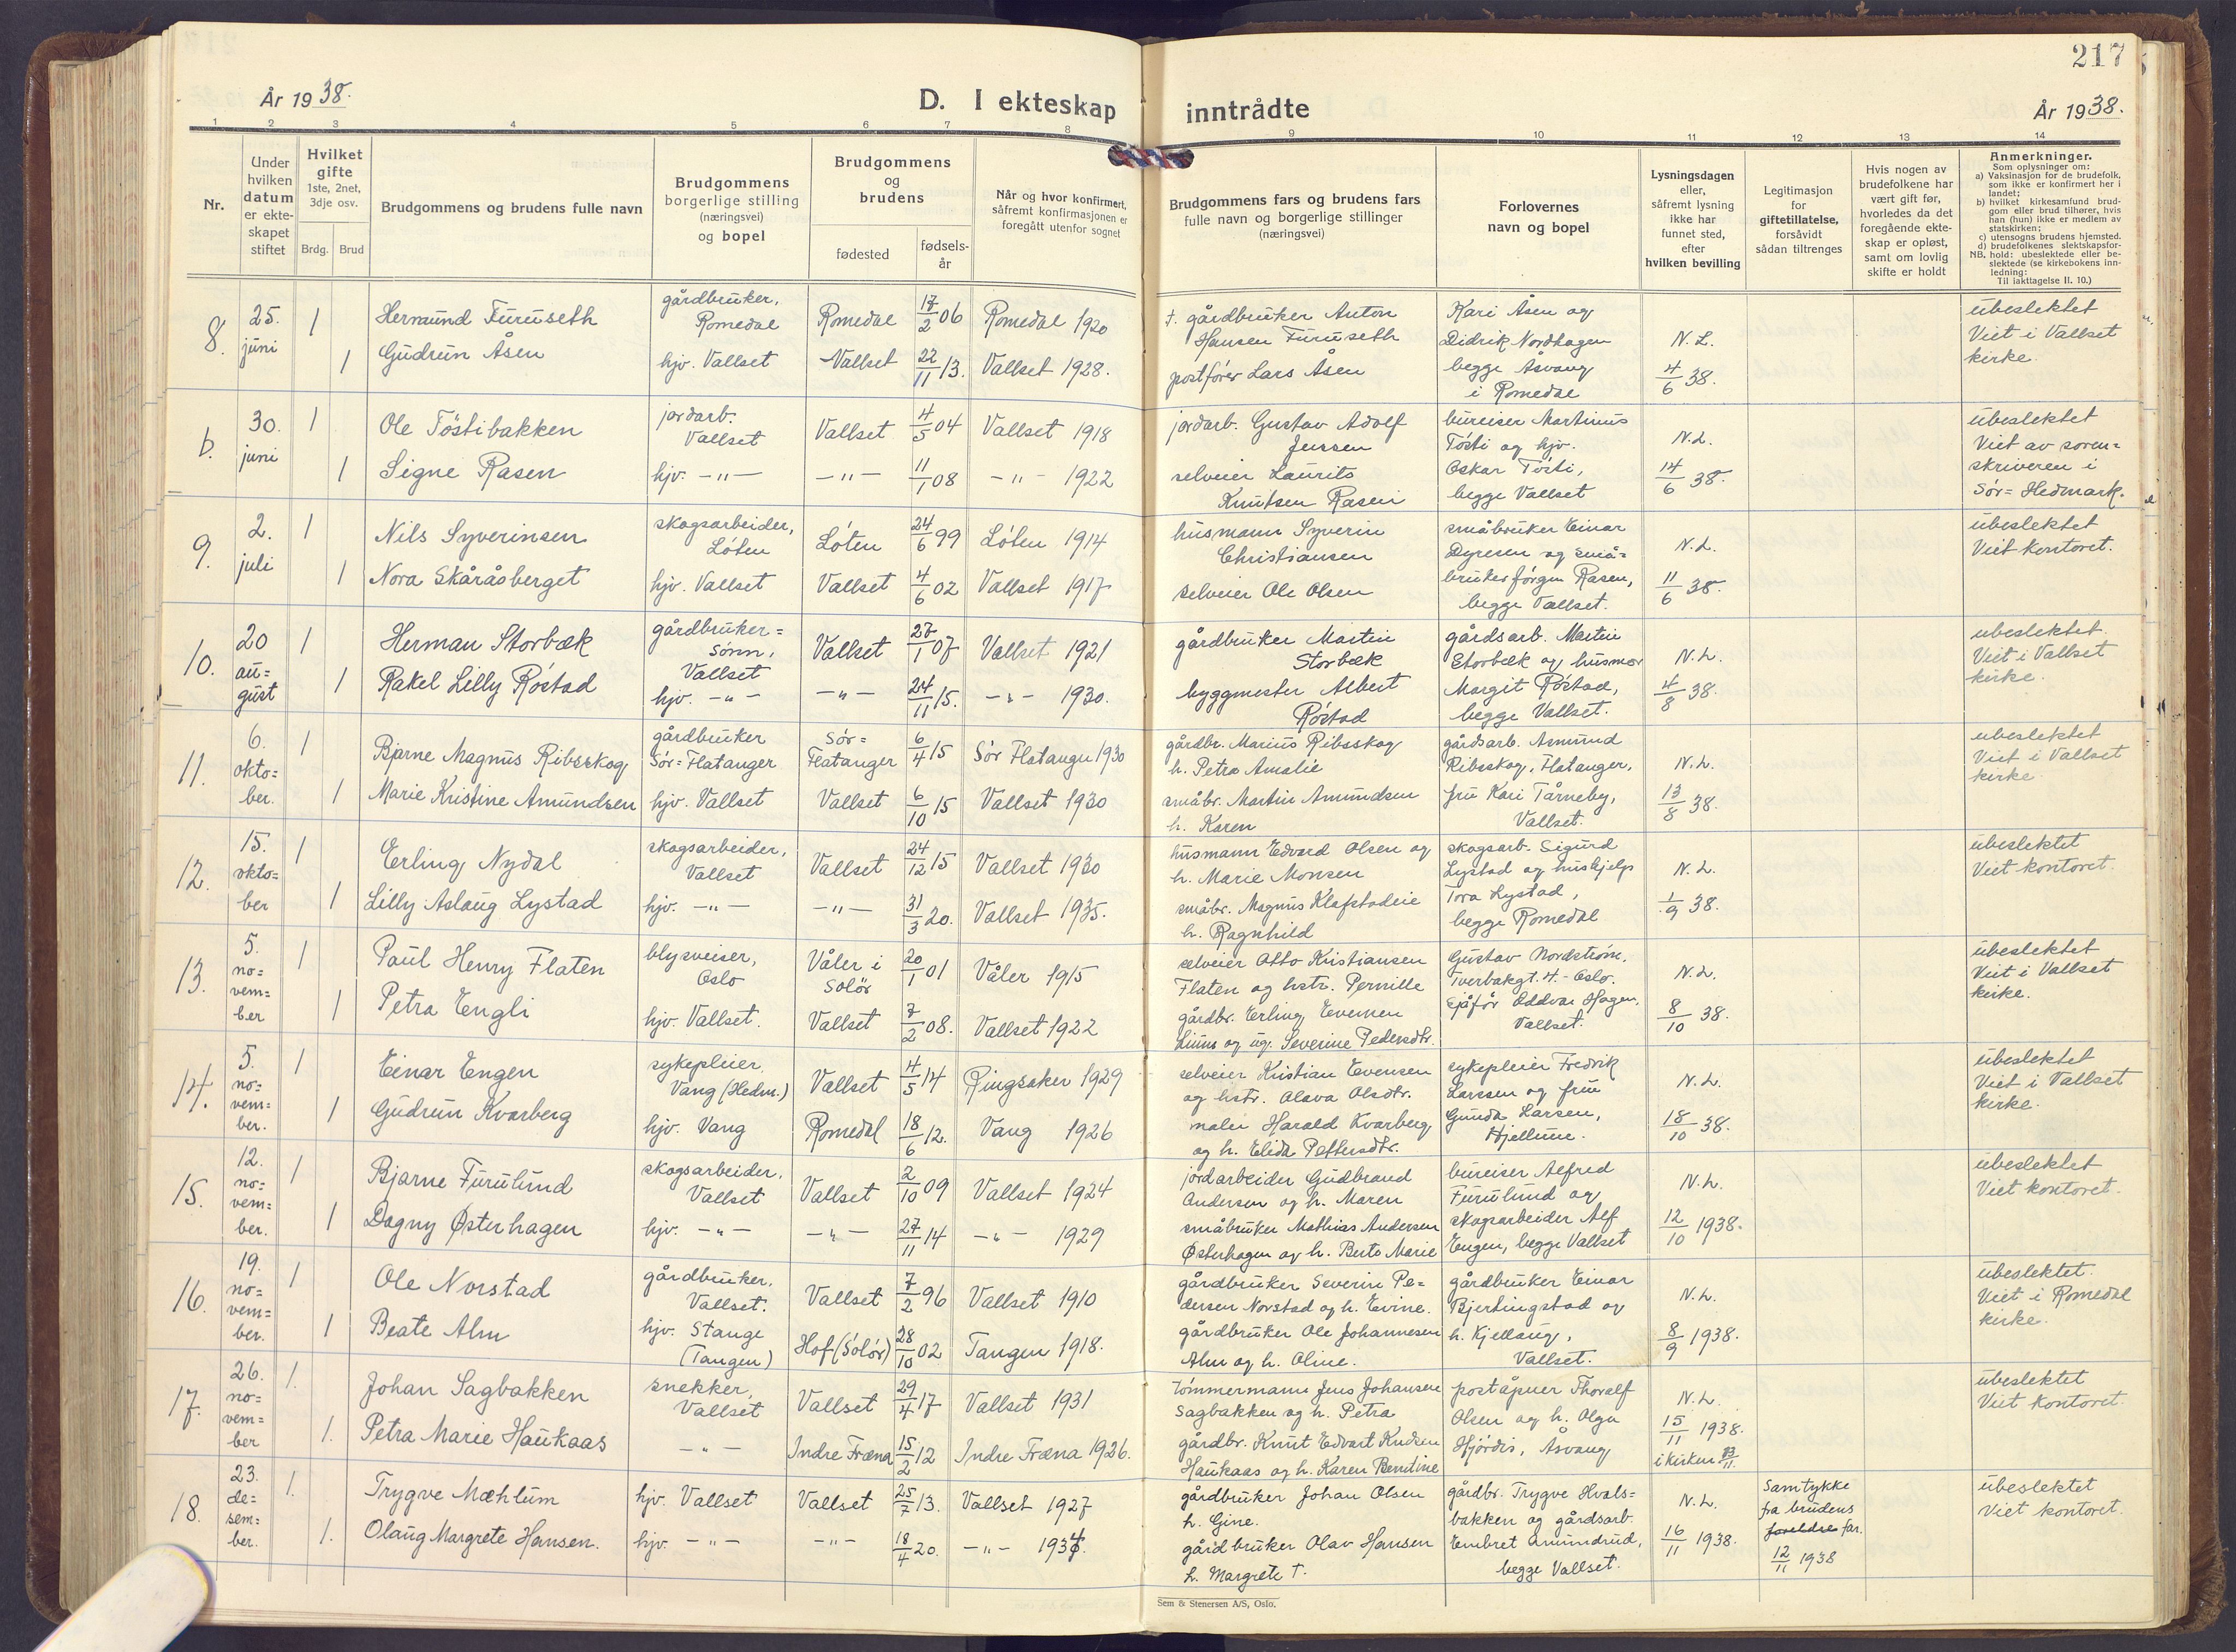 217
År 1938.
D. I ekteskap inntrådte
År 1938.
1 2 3 4 5 6 7 8 9 10 11 12 13 14
Nr.
Under
hvilken
datum
er ekte-
skapet
stiftet
Hvilket
gifte
1ste, 2net,
3dje osv.
Brdg. Brud
Brudgommens og brudens fulle navn
Brudgommens
borgerlige stilling
(næringsvei)
og bopel
Brudgommens
og
brudens
fødested
fødsels-
år
Når og hvor konfirmert,
såfremt konfirmasjonen er
foregått utenfor sognet
Brudgommens fars og brudens fars
fulle navn og borgerlige stillinger
(næringsvei)
Forlovernes
navn og bopel
Lysningsdagen
eller,
såfremt lysning
ikke har
funnet sted,
efter
hvilken bevilling
Legitimasjon
for
giftetillatelse,
forsåvidt
sådan tiltrenges
Hvis nogen av
brudefolkene har
vært gift før,
hvorledes da det
foregående ekte-
skap er opløst,
samt om lovlig
skifte er holdt
Anmerkninger.
Som oplysninger om:
a) Vaksinasjon for de brudefolk,
som ikke er konfirmert her i
landet;
b) hvilket kirkesamfund brud-
gom eller brud tilhører, hvis
han (hun) ikke er medlem av
statskirken;
c) utensogns brudens hjemsted.
d) brudefolkenes slektskapsfor-
NB. hold: ubeslektede eller be-
slektede (se kirkebokens inn-
ledning:
Til iakttagelse II. 10.)
8.
25.
juni
1
Hermund Furuseth
gårdbruker,
Romedal
Romedal
17/2 06
Romedal 1920
†. gårdbruker Anton
Hansen Furuseth
1
Gudrun Åsen
hjv. Vallset
Vallset
22/11 13.
Vallset 1928.
postfører Lars Åsen
Kari Åsen og
Didrik Nordhagen
begge Åsvang
i Romedal
N.L.
4/6 38.
ubeslektet
Viet i Vallset
kirke.
b.
30.
juni
1
Ole Töstibakken
jordarb.
Vallset
Vallset
4/5 04
Vallset 1918
jordarb. Gustav Adolf
Jenssen
1
Signe Rasen
hjv. -"-
-"-
11/1 08
-"- 1922
selveier Laurits
Knutsen Rasen
bureiser Martinus
Tösti og hjv.
Oskar Tösti,
begge Vallset
N.L.
14/6 38.
ubeslektet
Viet av soren=
skriveren i
Sör=Hedmark.
9.
2.
juli
1
Nils Syverinsen
skogsarbeider,
Löten
Löten
24/6 99
Löten 1914
husmann Syverin
Christiansen
1
Nora Skåråsberget
hjv. Vallset
Vallset
4/6 02
Vallset 1917
selveier Ole Olsen
småbruker Einar
Dyresen og små=
bruker Jörgen Rasen,
begge Vallset.
N.L.
11/6 38.
ubeslektet
Viet kontoret.
10.
20
au=
gust
1
Herman Storbæk
gårdbruker=
sönn,
Vallset
Vallset
27/1 07
Vallset 1921
gårdbruker Martin
Storbæk
1
Rakel Lilly Röstad
hjv. -"-
-"-
24/11 15.
-"- 1930.
byggmester Albert
Röstad
gårdsarb. Martin
Storbæk og husmor
Margit Röstad,
begge Vallset.
N.L.
4/8 38.
ubeslektet.
Viet i Vallset
kirke.
11.
6.
okto=
ber.
1
Bjarne Magnus Ribsskog
gårdbruker
Sör=Flatanger
Sör=
Flatanger
6/4 15
Sör Flatanger 1930
gårdbr. Marius Ribsskog
h. Petra Amalie
1
Marie Kristine Amundsen
hjv. Vallset
Vallset
6/10 15
Vallset 1930
småbr. Martin Amundsen
h. Karen
gårdsarb. Asmund
Ribsskog, Flatanger,
fru Kari Tårneby,
Vallset.
N.L.
13/8 38.
ubeslektet
Viet i Vallset
kirke
12.
15.
okto=
ber
1
Erling Nydal
skogsarbeider,
Vallset
Vallset
24/12 15
Vallset 1930
husmann Edvard Olsen og
h. Marie Monsen
1
Lilly Aslaug Lystad
hjv. -"-
-"-
31/3 20.
Vallset 1935.
småbr. Magnus Klafstadeie
h. Ragnhild
skogsarb. Sigurd
Lystad og hushjelp
Tora Lystad,
begge Romedal
N.L.
1/9 38.
ubeslektet
Viet kontoret.
13.
5.
no=
vem=
ber
1
Paul Henry Flaten
blysveiser,
Oslo
Våler i
Solör
20/1 01
Våler 1915
selveier Otto Kristiansen
Flaten og hstr. Pernille
1
Petra Engli
hjv. Vallset.
Vallset
7/2 08.
Vallset 1922
gårdbr. Erling Evensen
og ug. Severine Pedersdtr.
Gustav Nordström,
Tverbakgt. 4.-Oslo.
Sjåför Oddvar Hagen,
Vallset.
N.L.
8/10 38.
ubeslektet
Viet i Vallset
kirke.
14.
5.
no=
vem=
ber.
1
Einar Engen
sykepleier,
Vang (Hedm.)
Vallset
4/5 14
Ringsaker 1929
selveier Kristian Evensen
og hstr. Olava Olsdtr.
1
Gudrun Kvarberg
hjv. Vang
Romedal
18/6 12.
Vang 1926
maler Harald Kvarberg
og h. Elida Pettersdtr.
sykepleier Fredrik
Larssen og fru
Gunda Larsen,
Hjellum.
N.L.
18/10 38.
ubeslektet
Viet i Vallset
kirke.
15.
12.
no=
vem=
ber.
1
Bjarne Furulund
skogsarbeider,
Vallset
Vallset
2/10 09
Vallset 1924
jordarbeider Gudbrand
Andersen og h. Maren
1
Dagny Østerhagen
hjv. -"-
-"-
27/11 14
-"- 1929
småbruker Mathias Andersen
Østerhagen og h. Berte Marie
bureiser Alfred
Furulund og
skogsarbeider Alf
Engen, begge Vallset
N.L.
12/10 1938.
ubeslektet
Viet kontoret.
16.
19.
no=
vem=
ber.
1
Ole Norstad
gårdbruker,
Vallset.
Vallset
7/2 96
Vallset 1910
gårdbruker Severin Pe=
dersen Norstad og h. Evine.
1
Beate Alm
hjv. Stange
(Tangen)
Hof (Solör)
28/10 02
Tangen 1918.
gårdbruker Ole Johannesen
Alm og h. Oline.
gårdbruker Einar
Bjertingstad og
h. Kjellaug,
Vallset.
N.L.
8/9 1938.
ubeslektet.
Viet i Romedal
kirke.
17.
26.
no=
vem=
ber
1.
Johan Sagbakken
snekker,
Vallset
Vallset
29/4 17
Vallset 1931
tömmermann Jens Johansen
Sagbakken og h. Petra
1.
Petra Marie Haukaas
-"-
Indre Fræna
15/2 12
Indre Fræna 1926.
gårdbr. Knut Edvart Knudsen
Haukaas og h. Karen Bendtine
poståpner Thoralf
Olsen og h. Olga
Hjördis, Åsvang
N.L.
15/11 1938.
i kirken 13/11.
ubeslektet
Viet kontoret.
18.
23.
de=
sem=
ber.
1.
Trygve Mæhlum
hjv. Vallset
Vallset
25/7 13.
Vallset 1927
gårdbruker Johan Olsen
h. Gine.
1.
Olaug Margrete Hansen.
hjv. -"-
-"-
18/4 20.
-"- 1934.
gårdbruker Olav Hansen
h. Margrete †.
gårdbr. Trygve Hvals=
bakken og gårdsarb.
Embret Amundrud,
begge Vallset.
N.L.
16/11 1938.
Samtykke
fra brudens
foreldre far.
12/11 1938
ubeslektet
Viet kontoret.
Sem & Stenersen A/S, Oslo.